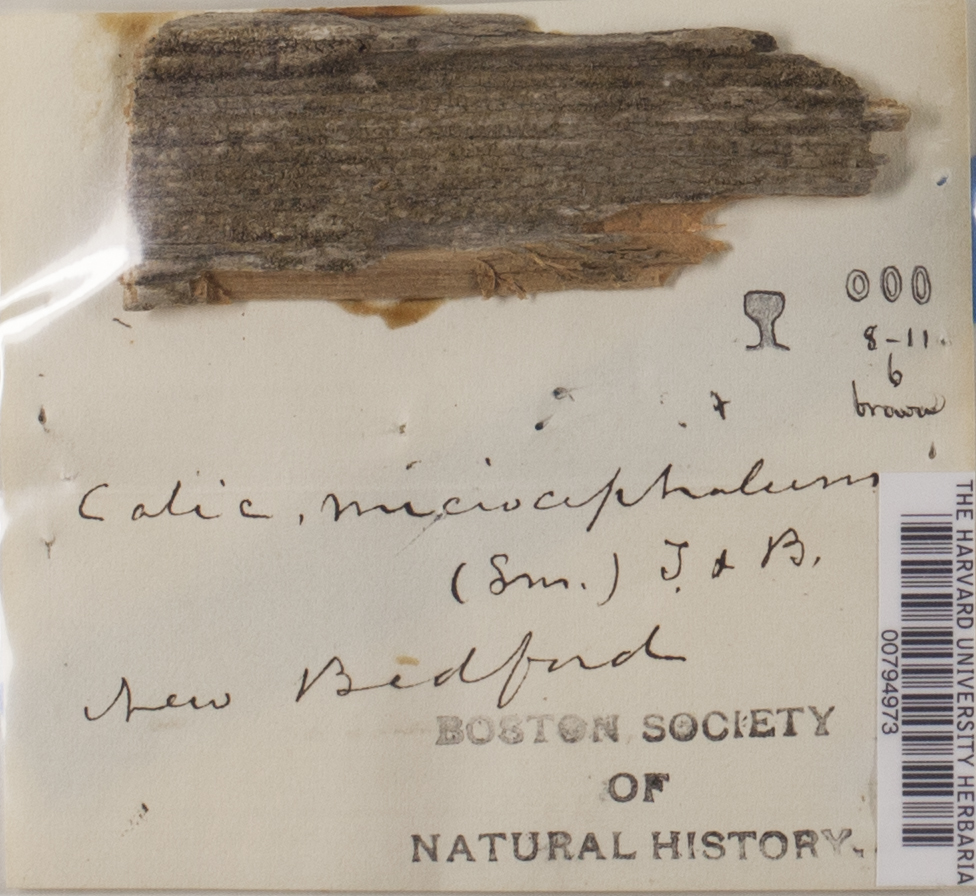 8-11.
6
brown
Calic. microcephalum
(Sm.) T. & B.
New Bedford
BOSTON SOCIETY
OF
NATURAL HISTORY.
THE HARVARD UNIVERSITY HERBARIA
00794973